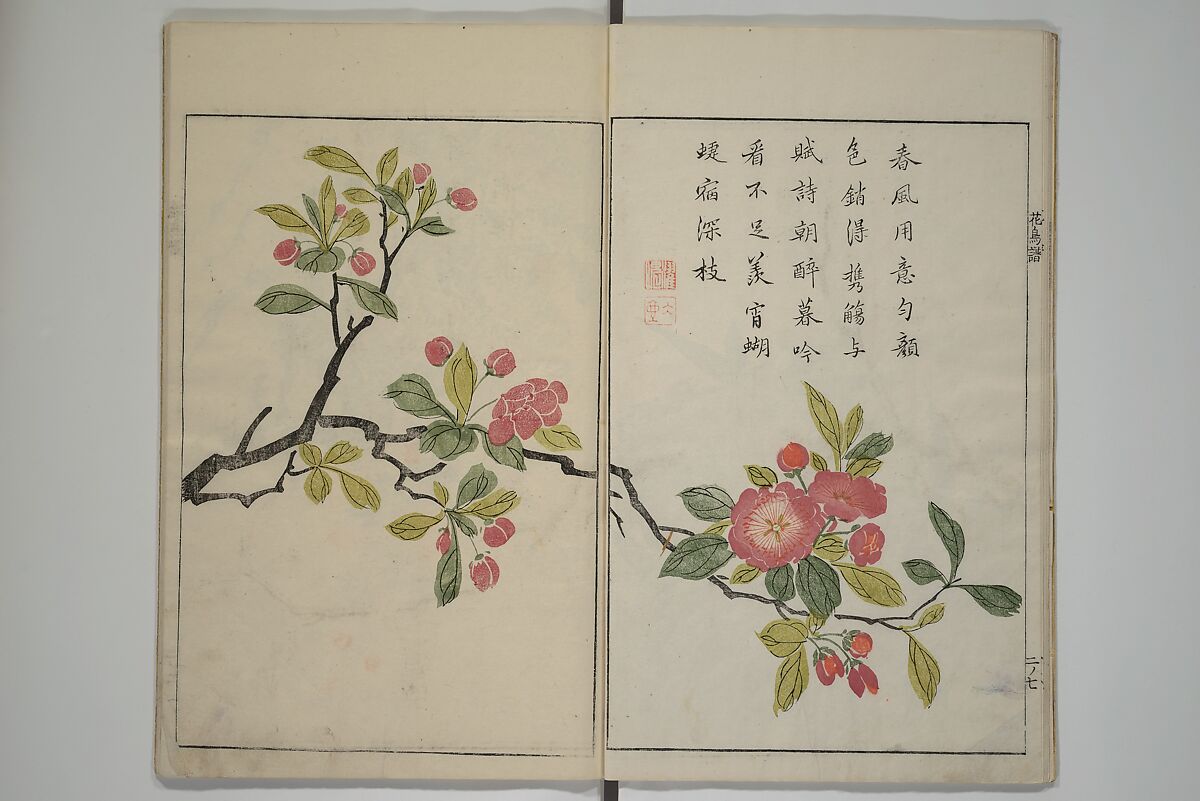 春風用意勻顏
色銷得携觴与
賦詩朝醉暮吟
看不足羨宵蝴
蝶宿深枝
花鳥譜
二ノ七